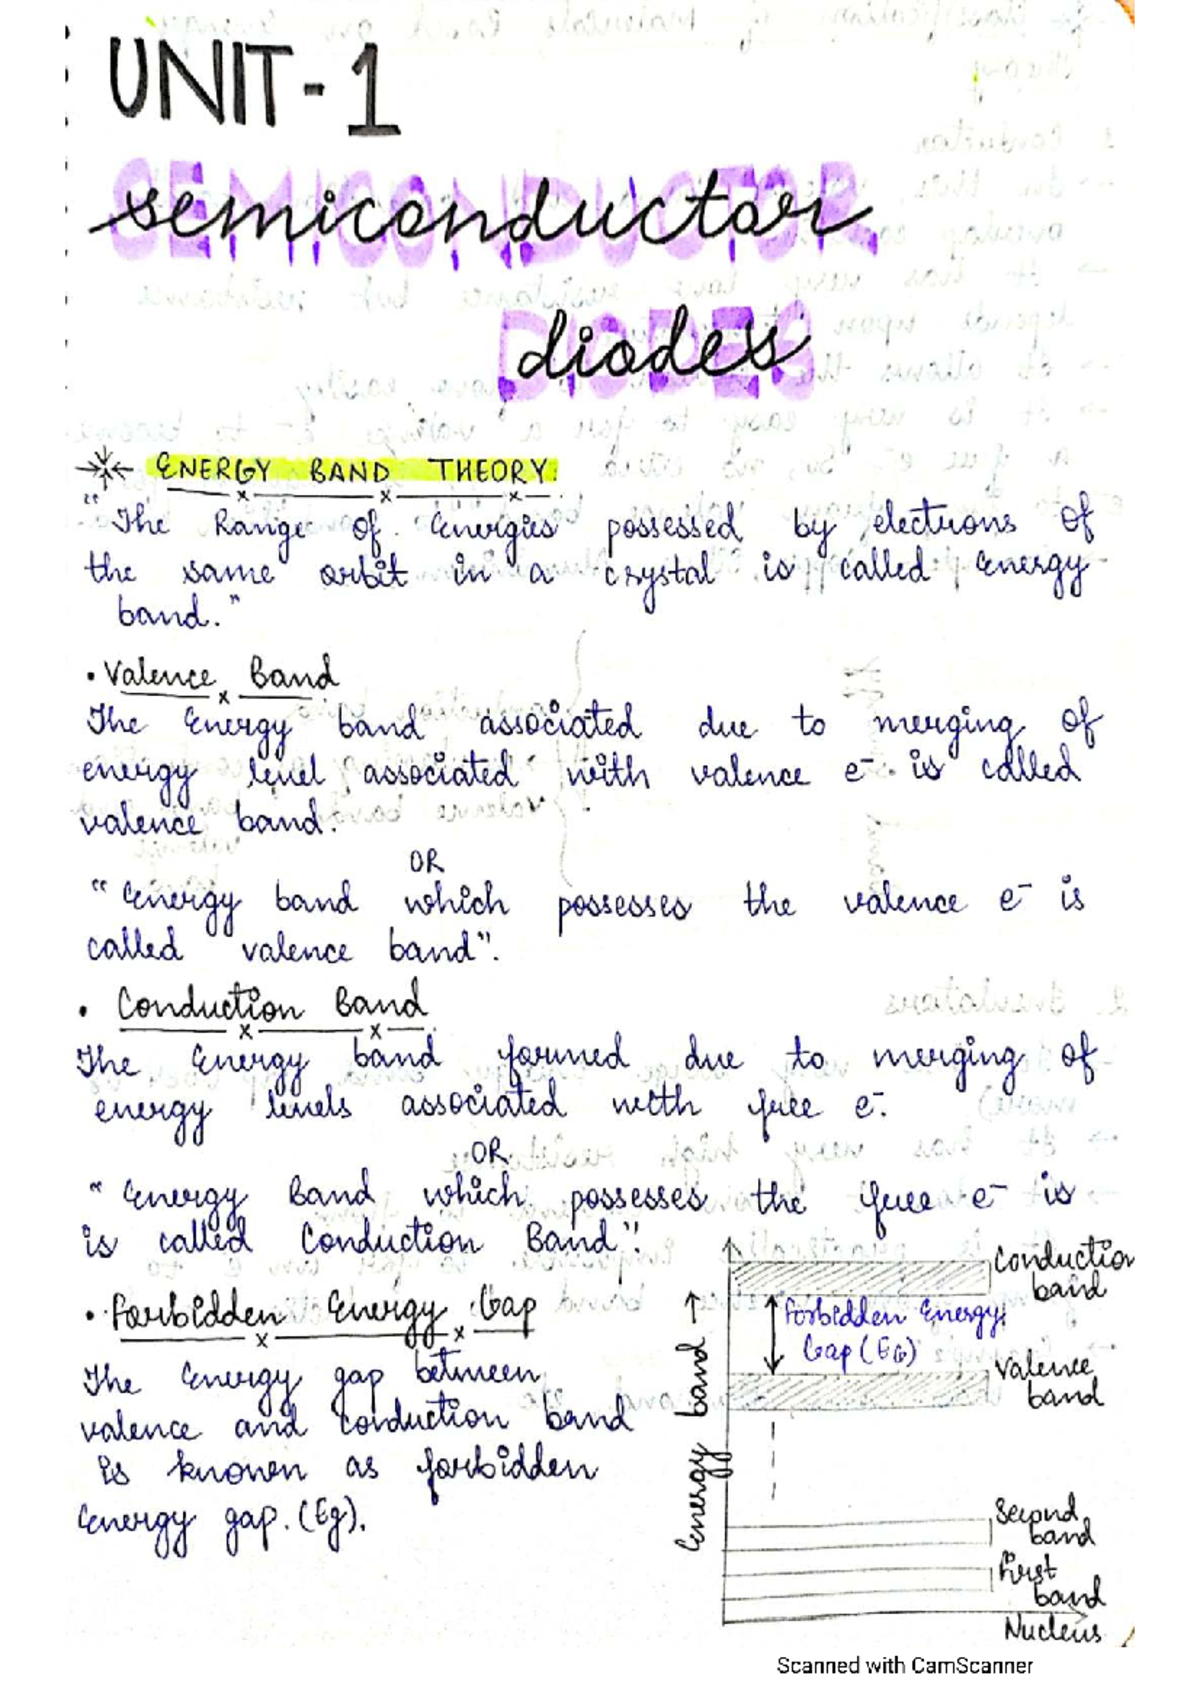 UNIT-1
semiconductor
diodes
ENERGY BAND THEORY:
"The Range of Energies possessed by electrons of
the same orbit in a crystal is called Energy
band."
• Valence Band
The Energy band associated due to merging of
energy level associated with valence e⁻ is called
valence band.
OR
"Energy band which possesses the valence e⁻ is
called valence band".
• Conduction Band
The Energy band formed due to merging of
energy levels associated with free e⁻.
OR
"Energy Band which possesses the free e⁻ is
is called Conduction Band".
• Forbidden Energy Gap
The Energy gap between
valence and conduction band
is known as forbidden
Energy gap. (Eg).
Energy band →
Conduction
band
Forbidden Energy
Gap (EG)
Valence
band
Second
band
First
band
Nucleus
Scanned with CamScanner